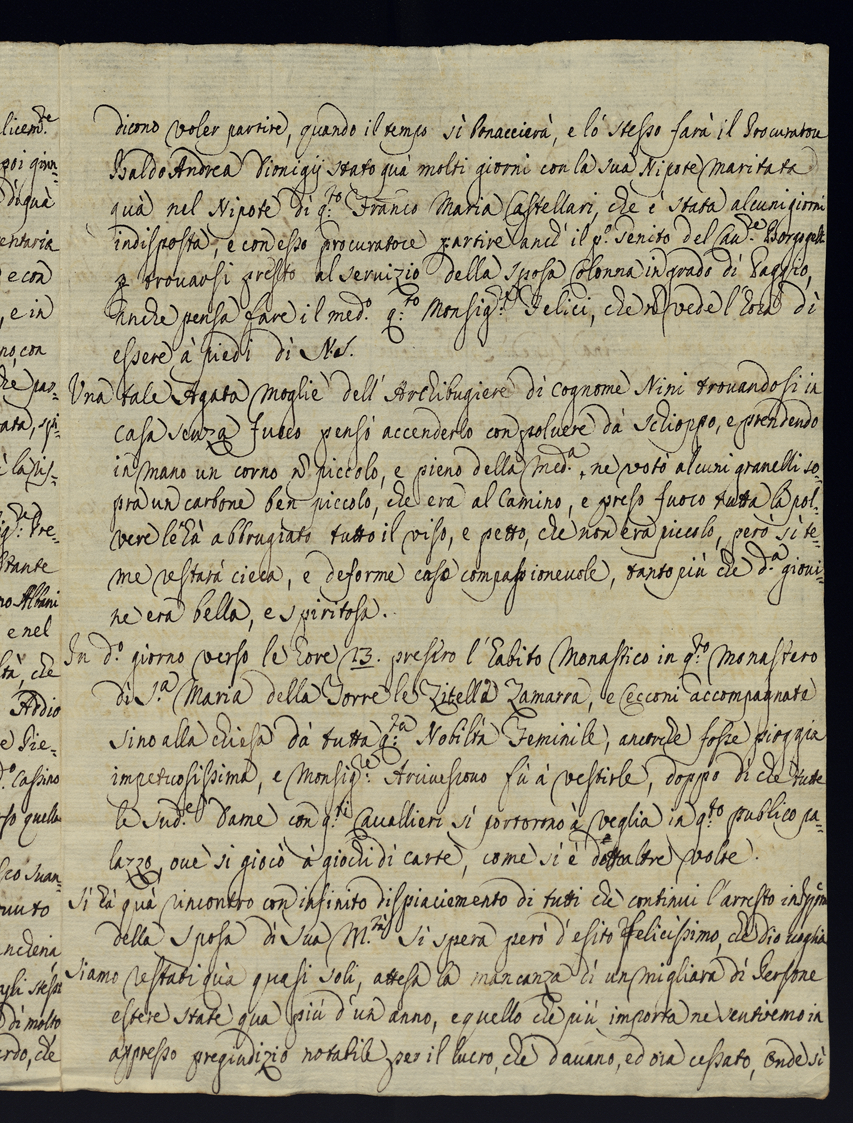 dicono voler partire, quando il tempo si bonaccierà, e lo stesso farà il Procuratore
Baldo Andrea Dionigij stato quà molti giorni con la sua Nipote maritata
quà nel Nipote di q.to Franco Maria Castellari, che è stata alcuni giorni
indisposta, e con esso procuratore partirà anch' il p.o
trovarsi presto al servizio della sposa Colonna in grado di Paggio,
anche pensa fare il med.o q.to Monsig.re Felici, che vede l'hora di
essere à piedi di N.S.
Una tale Agata moglie dell' Archibugiere di cognome Nini trovandosi in
casa senza fuoco pensò accenderlo con polvere dà schioppo, e prendendo
in mano un corno piccolo, e pieno della med.a, ne votò alcuni granelli so-
pra un carbone ben piccolo, che era al Camino, e preso fuoco tutta la pol-
vere le hà abbrugiato tutto il viso, e petto, che non era piccolo, però si te-
me restarà cieca, e deforme caso compassionevole, tanto più che d.a giovi-
ne era bella, e spiritosa.
In d.o giorno verso le hore 13. presero l'habito Monastico in q.to monastero
di S.a Maria della Torre le Zitelle Zamarra, e Cecconi accompagnate
sino alla chiesa dà tutta q.ta Nobiltà Feminile, ancorche fosse pioggia
impetuosissima, e Monsig.re Arcivescovo fù à vestirle, doppo di che tutte
le sud.e Dame con q.ti Cavallieri si portorno à veglia in q.to publico pa-
lazzo, ove si giocò à giochi di carte, come si è detto altre volte.
Si hà quà rincontro con infinito dispiacimento di tutti che continui l'arresto in
della Sposa di Sua M.tà si spera però d'esito felicissimo, che dio voglia
Siamo restati quà quasi soli, attesa la mancanza di un migliara di Persone
essere state qua più d'un anno, e quello che più importa ne sentiremo in
appresso pregiudizio notabile per il lucro, che davano, ed ora cessato, onde si